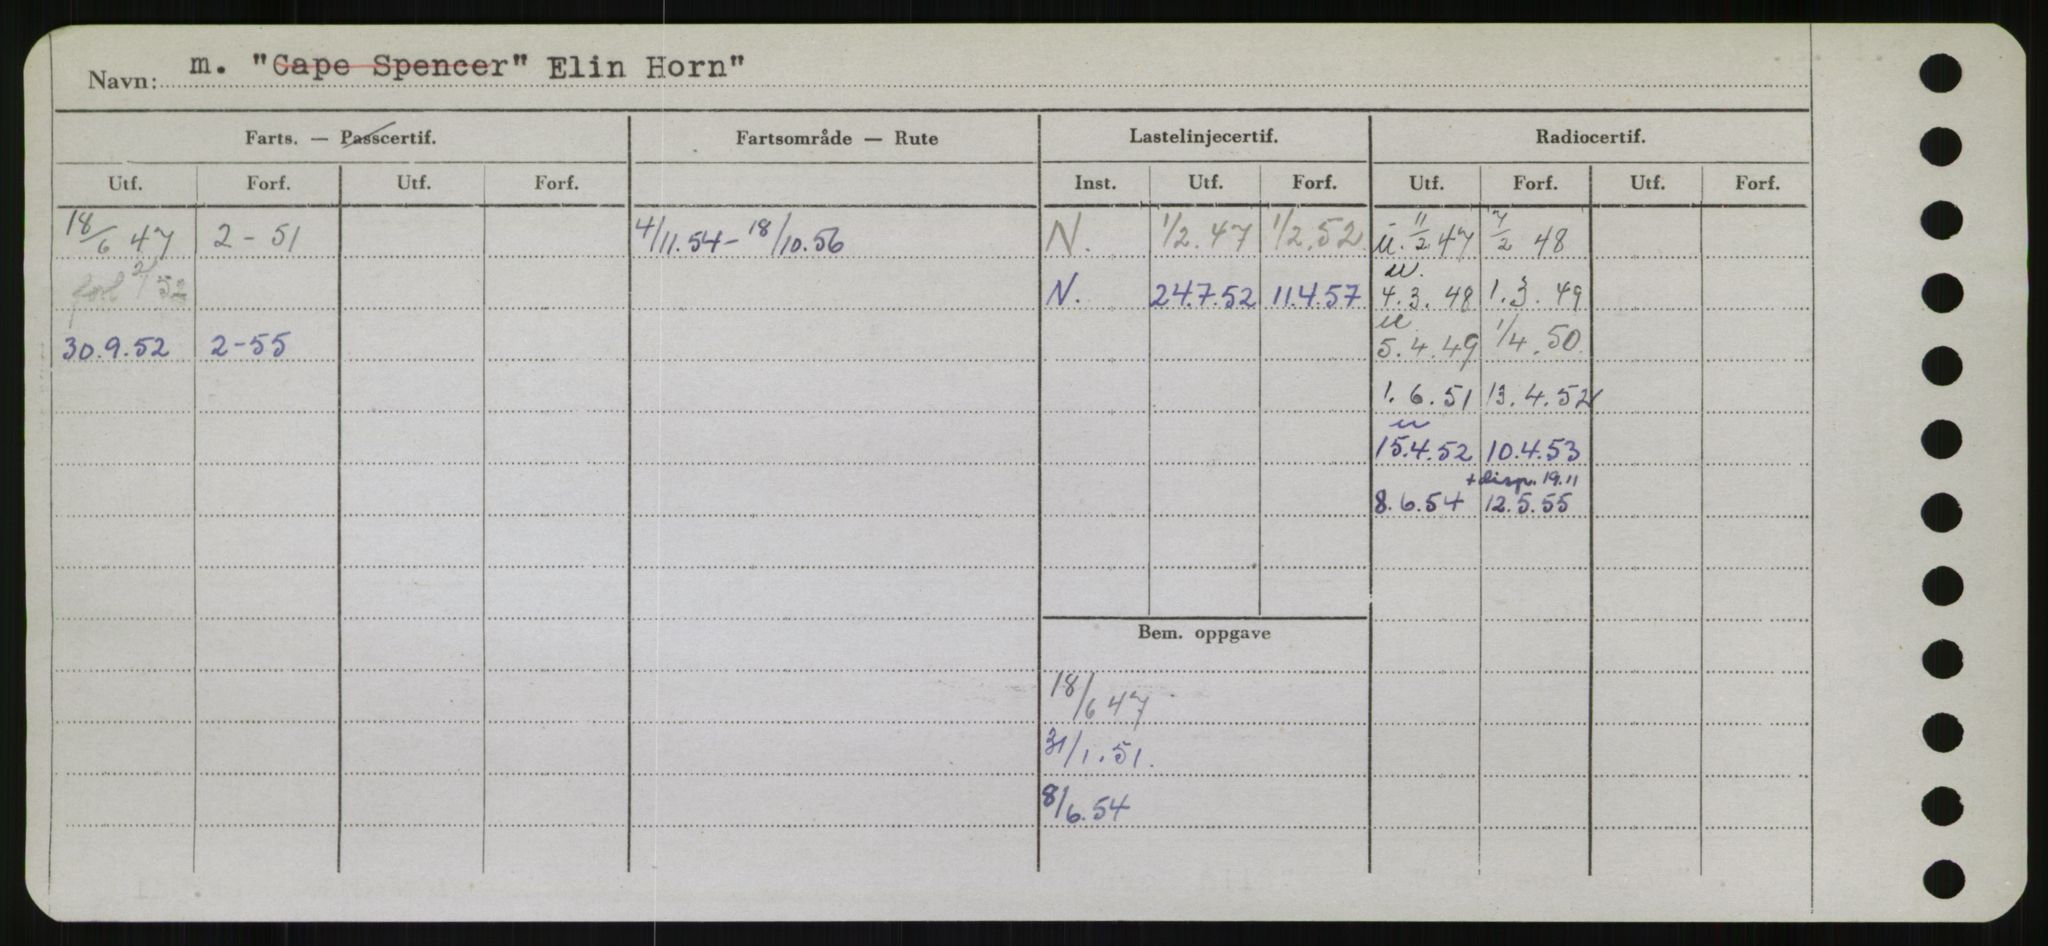 Navn: m. "Cape Spencer" Elin Horn"
Farts. — Passcertif. Fartsområde — Rute Lastelinjecertif. Radiocertif.
Utf. Forf. Utf. Forf. Inst. Utf. Forf. Utf. Forf. Utf. Forf.
18/6 47 2-51 4/11.54-18/10.56 N. 1/2.47 1/2.52 u. 11/2 47 7/2 48
forl 2/52 N. 24.7.52 11.4.57 u. 4.3.48 1.3.49
30.9.52 2-55 u 5.4.49 1/4.50
1.6.51 13.4.52
u
15.4.52 10.4.53
+disp. 19.11
8.6.54 12.5.55
Bem. oppgave
18/6 47
31/1.51.
8/6.54